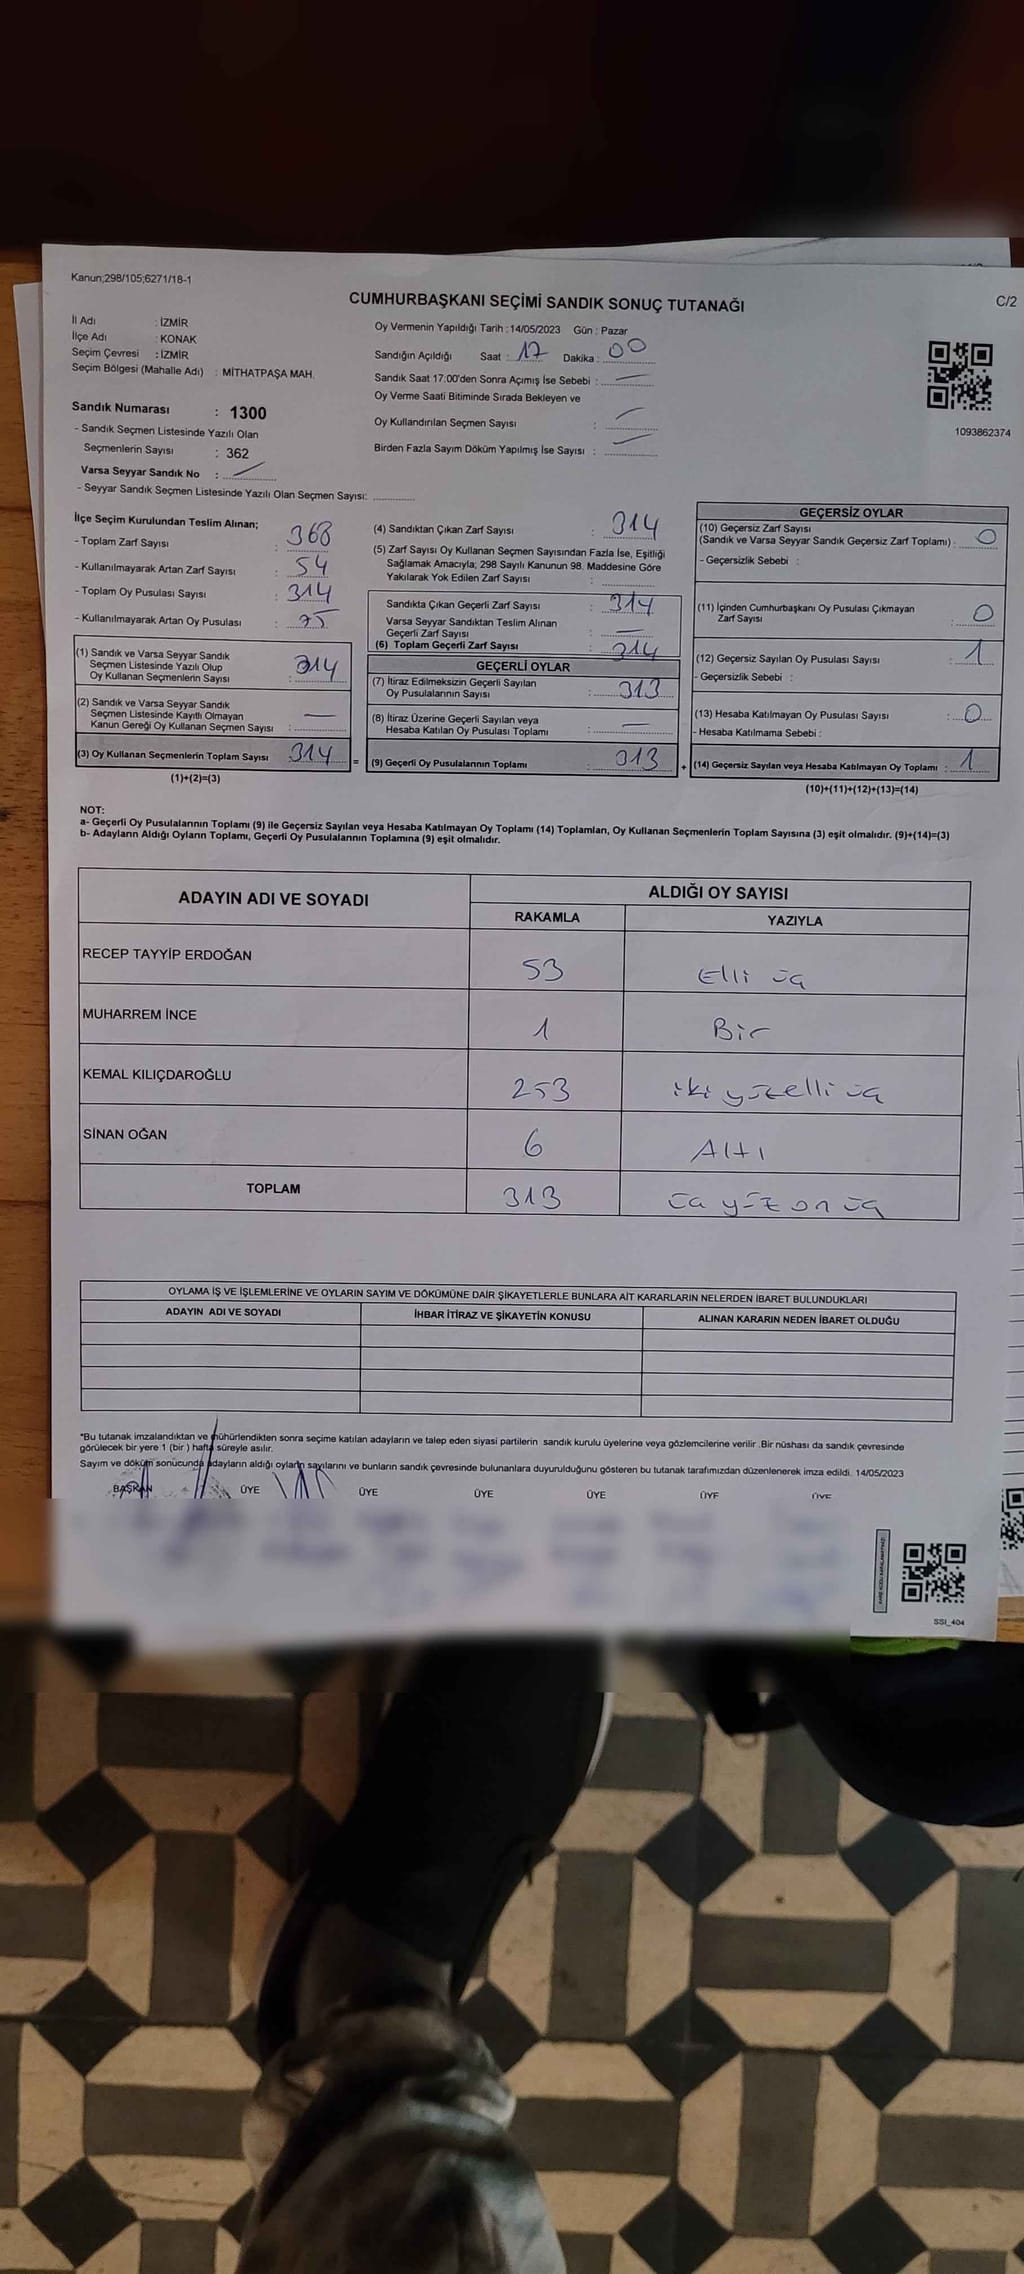 Kanun;298/105;6271/18-1
C/2
CUMHURBAŞKANI SEÇİMİ SANDIK SONUÇ TUTANAĞI
İl Adı : İZMİR
İlçe Adı : KONAK
Seçim Çevresi : İZMİR
Seçim Bölgesi (Mahalle Adı) : MİTHATPAŞA MAH.
Oy Vermenin Yapıldığı Tarih : 14/05/2023 Gün : Pazar
Sandığın Açıldığı Saat : 17 Dakika : 00
Sandık Saat 17:00'den Sonra Açımış İse Sebebi : —
Oy Verme Saati Bitiminde Sırada Bekleyen ve
Oy Kullandırılan Seçmen Sayısı : —
Birden Fazla Sayım Döküm Yapılmış İse Sayısı : —
1093862374
Sandık Numarası : 1300
- Sandık Seçmen Listesinde Yazılı Olan
Seçmenlerin Sayısı : 362
Varsa Seyyar Sandık No : —
- Seyyar Sandık Seçmen Listesinde Yazılı Olan Seçmen Sayısı: ............
İlçe Seçim Kurulundan Teslim Alınan;
- Toplam Zarf Sayısı : 368
- Kullanılmayarak Artan Zarf Sayısı : 54
- Toplam Oy Pusulası Sayısı : 314
- Kullanılmayarak Artan Oy Pusulası : 75
(1) Sandık ve Varsa Seyyar Sandık
Seçmen Listesinde Yazılı Olup
Oy Kullanan Seçmenlerin Sayısı : 314
(2) Sandık ve Varsa Seyyar Sandık
Seçmen Listesinde Kayıtlı Olmayan
Kanun Gereği Oy Kullanan Seçmen Sayısı : —
(3) Oy Kullanan Seçmenlerin Toplam Sayısı 314
(1)+(2)=(3)
(4) Sandıktan Çıkan Zarf Sayısı : 314
(5) Zarf Sayısı Oy Kullanan Seçmen Sayısından Fazla İse, Eşitliği
Sağlamak Amacıyla; 298 Sayılı Kanunun 98. Maddesine Göre
Yakılarak Yok Edilen Zarf Sayısı : ............
Sandıkta Çıkan Geçerli Zarf Sayısı : 314
Varsa Seyyar Sandıktan Teslim Alınan
Geçerli Zarf Sayısı : —
(6) Toplam Geçerli Zarf Sayısı : 314
GEÇERLİ OYLAR
(7) İtiraz Edilmeksizin Geçerli Sayılan
Oy Pusulalarının Sayısı : 313
(8) İtiraz Üzerine Geçerli Sayılan veya
Hesaba Katılan Oy Pusulası Toplamı : —
= (9) Geçerli Oy Pusulalarının Toplamı : 313
GEÇERSİZ OYLAR
(10) Geçersiz Zarf Sayısı
(Sandık ve Varsa Seyyar Sandık Geçersiz Zarf Toplamı) : 0
- Geçersizlik Sebebi :
(11) İçinden Cumhurbaşkanı Oy Pusulası Çıkmayan
Zarf Sayısı : 0
(12) Geçersiz Sayılan Oy Pusulası Sayısı : 1
- Geçersizlik Sebebi :
(13) Hesaba Katılmayan Oy Pusulası Sayısı : 0
- Hesaba Katılmama Sebebi :
+ (14) Geçersiz Sayılan veya Hesaba Katılmayan Oy Toplamı : 1
(10)+(11)+(12)+(13)=(14)
NOT:
a- Geçerli Oy Pusulalarının Toplamı (9) ile Geçersiz Sayılan veya Hesaba Katılmayan Oy Toplamı (14) Toplamları, Oy Kullanan Seçmenlerin Toplam Sayısına (3) eşit olmalıdır. (9)+(14)=(3)
b- Adayların Aldığı Oyların Toplamı, Geçerli Oy Pusulalarının Toplamına (9) eşit olmalıdır.
ADAYIN ADI VE SOYADI ALDIĞI OY SAYISI
RAKAMLA YAZIYLA
RECEP TAYYİP ERDOĞAN 53 Elli üç
MUHARREM İNCE 1 Bir
KEMAL KILIÇDAROĞLU 253 iki yüzelli üç
SİNAN OĞAN 6 Altı
TOPLAM 313 üç yüz on üç
OYLAMA İŞ VE İŞLEMLERİNE VE OYLARIN SAYIM VE DÖKÜMÜNE DAİR ŞİKAYETLERLE BUNLARA AİT KARARLARIN NELERDEN İBARET BULUNDUKLARI
ADAYIN ADI VE SOYADI İHBAR İTİRAZ VE ŞİKAYETİN KONUSU ALINAN KARARIN NEDEN İBARET OLDUĞU
*Bu tutanak imzalandıktan ve mühürlendikten sonra seçime katılan adayların ve talep eden siyasi partilerin sandık kurulu üyelerine veya gözlemcilerine verilir .Bir nüshası da sandık çevresinde
görülecek bir yere 1 (bir ) hafta süreyle asılır.
Sayım ve döküm sonucunda adayların aldığı oyların sayılarını ve bunların sandık çevresinde bulunanlara duyurulduğunu gösteren bu tutanak tarafımızdan düzenlenerek imza edildi. 14/05/2023
BAŞKAN ÜYE ÜYE ÜYE ÜYE ÜYE ÜYE
SSI_404